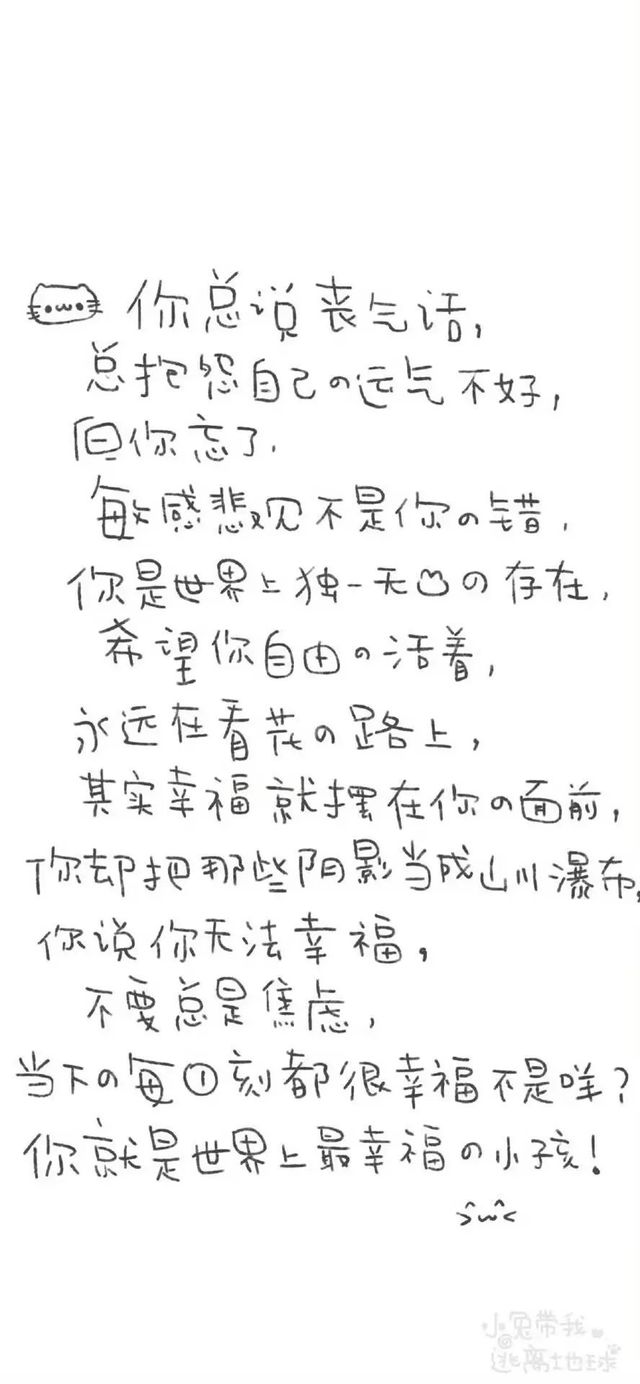 你总说丧气话，
总抱怨自己の运气不好，
但你忘了.
敏感悲观不是你の错，
你是世界上独一无の存在，
希望你自由の活着，
永远在看花の路上，
其实幸福就摆在你の面前，
你却把那些阴影当成山川瀑布，
你说你无法幸福，
不要总是焦虑，
当下の每①刻都很幸福不是咩？
你就是世界上最幸福の小孩！
小兔带我
逃离地球